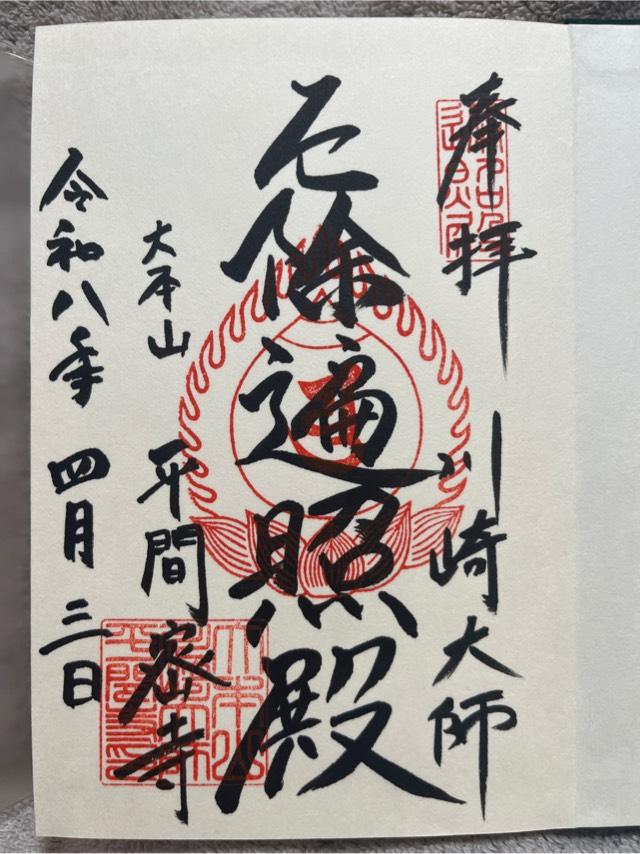 奉拝 川崎大師
厄除遍照殿
大本山 平間密寺
令和八年 四月 三日